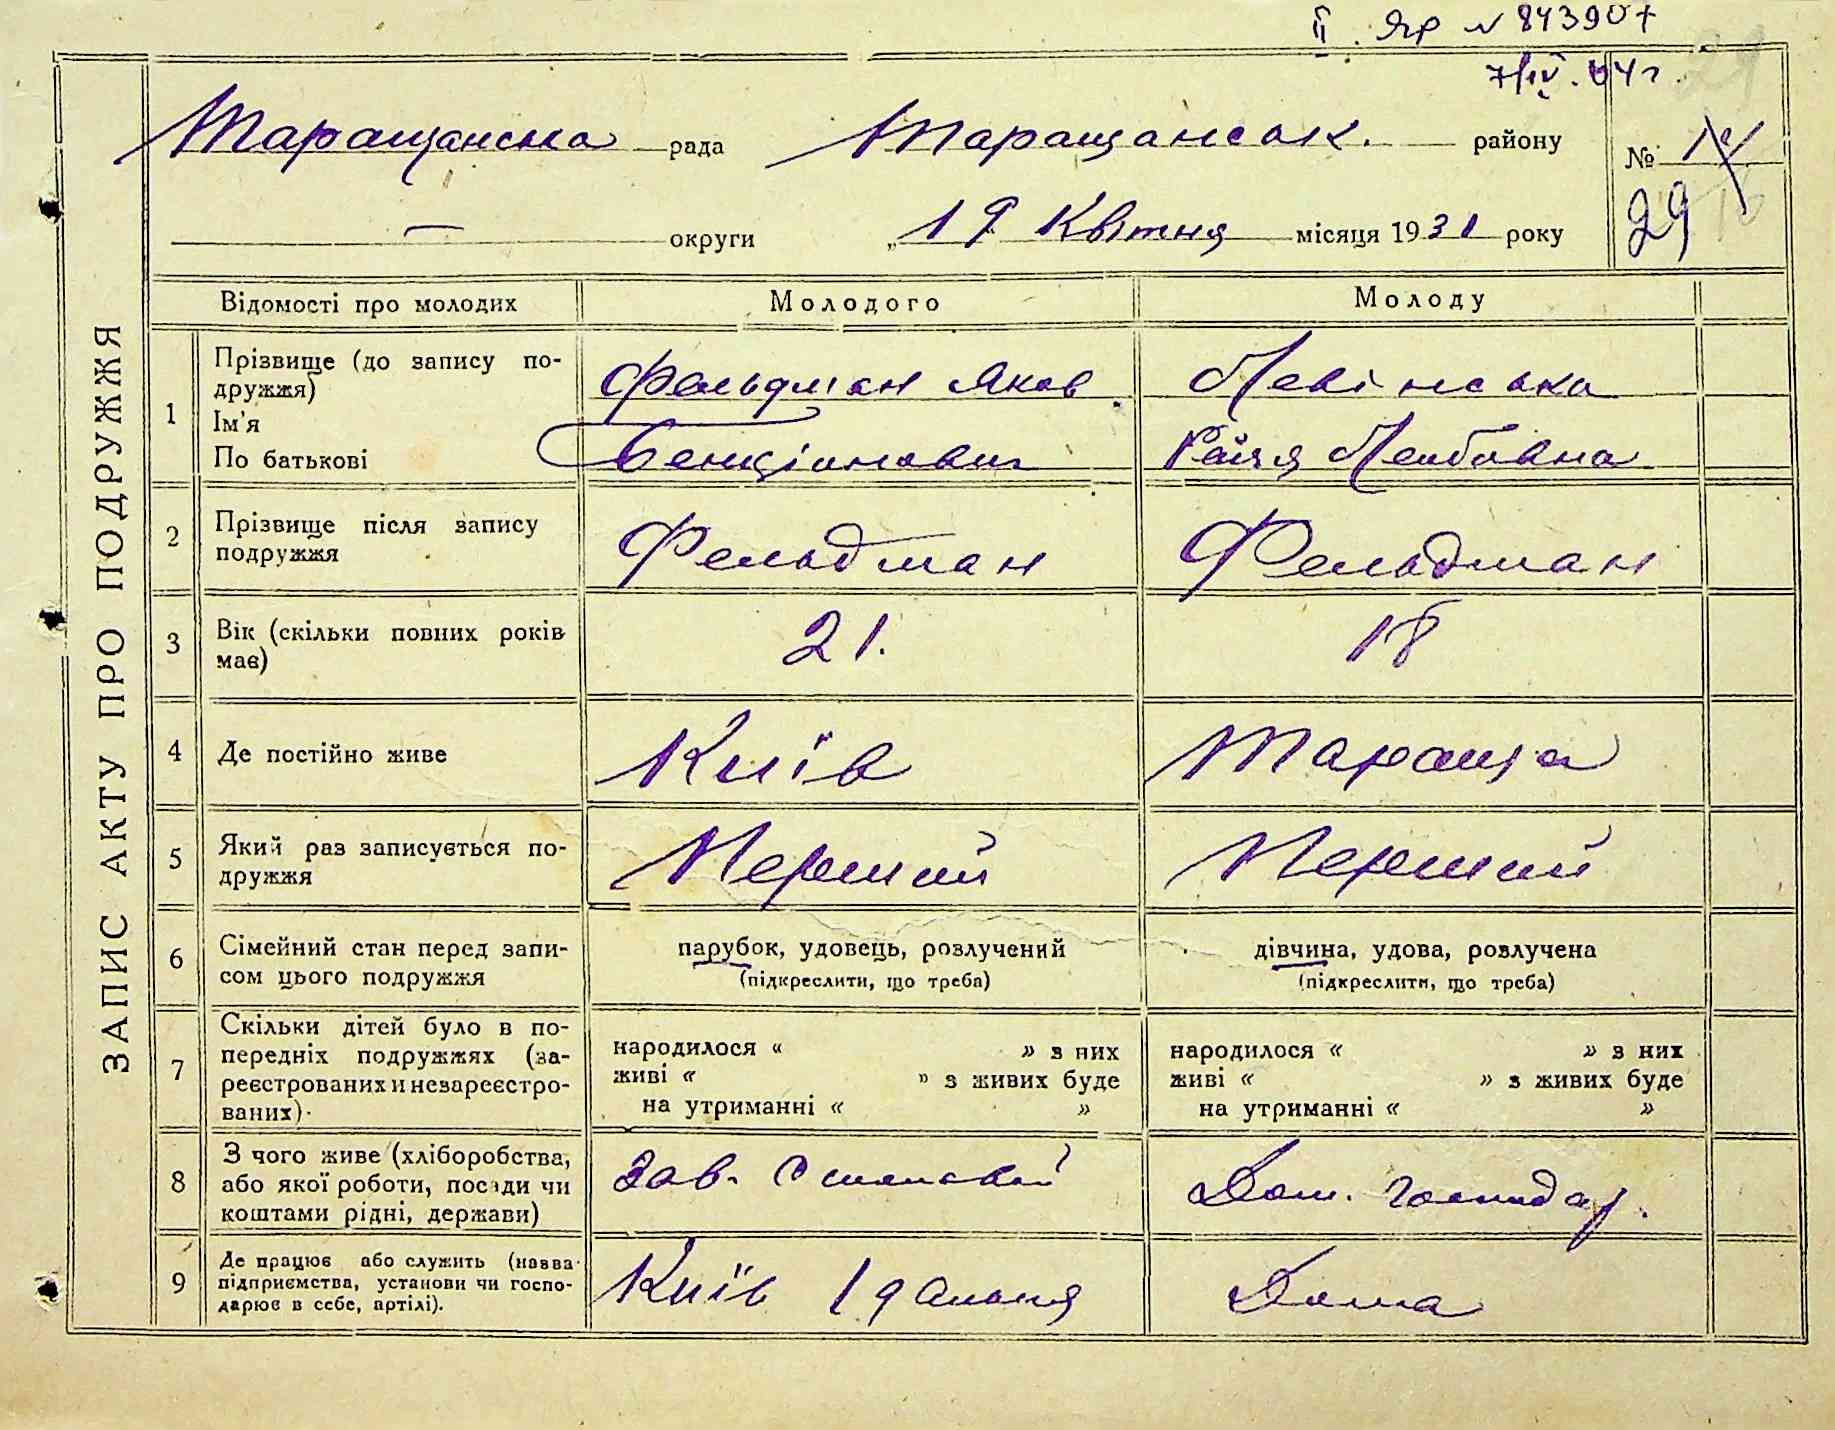 II. Яр N 843907
7/IV. 64 г.
29
Таращанська рада Таращанськ. району
№ 14
29
— округи „19 Квітня місяця 1931 року
ЗАПИС АКТУ ПРО ПОДРУЖЖЯ
Відомості про молодих Молодого Молоду
1 Прізвище (до запису по-
дружжя)
Ім'я
По батькові
Фельдман Яков
Бенціонович
Левінська
Рейзя Лейбовна
2 Прізвище після запису
подружжя
Фельдман
Фельдман
3 Вік (скільки повних років
має)
21.
18
4 Де постійно живе
Київ
Тараща
5 Який раз записується по-
дружжя
Перший
Перший
6 Сімейний стан перед запи-
сом цього подружжя
парубок, удовець, розлучений
(підкреслити, що треба)
дівчина, удова, розлучена
(підкреслити, що треба)
7 Скільки дітей було в по-
передніх подружжях (за-
реєстрованих и незареєстро-
ваних).
народилося “ „ з них
живі “ „ з живих буде
на утриманні “ „
народилося “ „ з них
живі “ „ з живих буде
на утриманні “ „
8 З чого живе (хліборобства,
або якої роботи, посади чи
коштами рідні, держави)
Зав.
Дом. господар.
9 Де працює або служить (назва
підприємства, установи чи госпо-
дарює в себе, артілі).
Київ 19
Дома